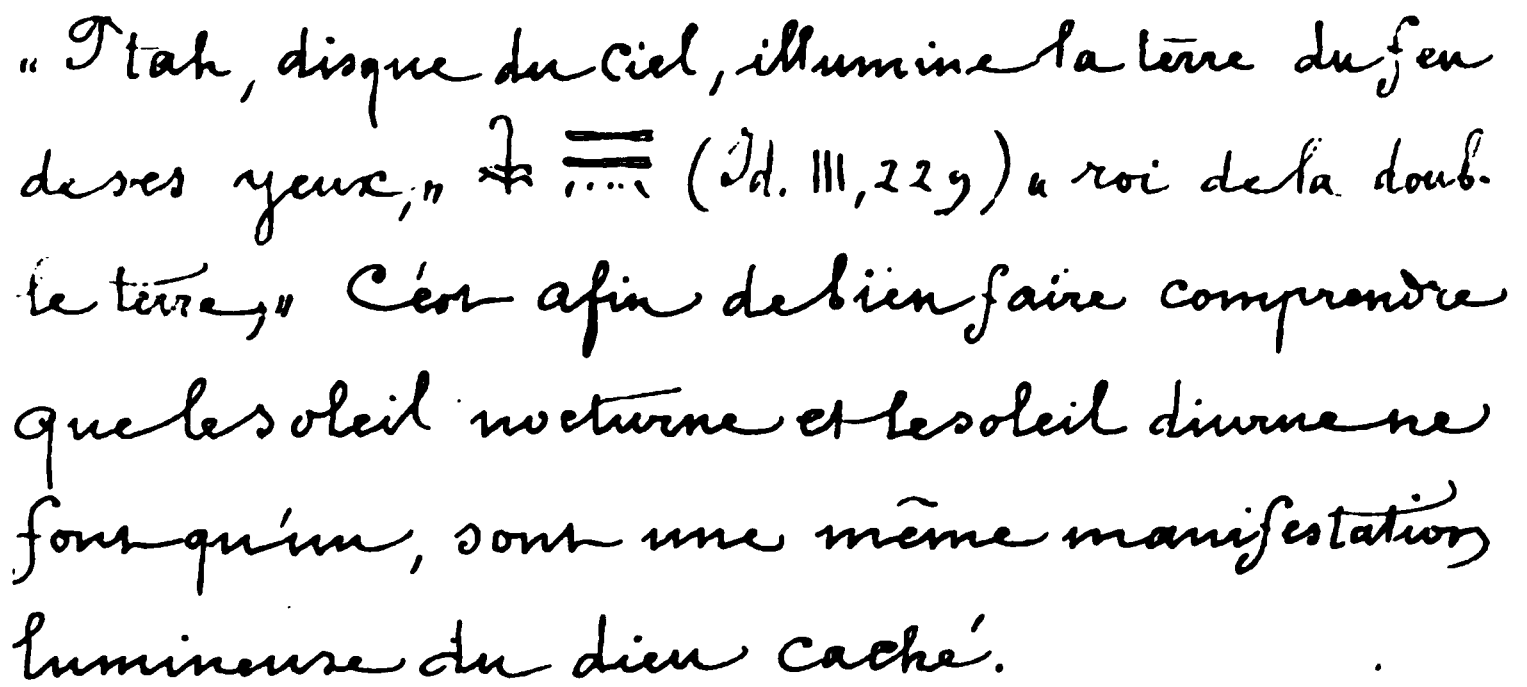 „ Ptah, disque du ciel, illumine la terre du feu
de ses yeux," 𓇓 𓇿𓇿 (Id. III, 229) „ roi de la doub-
le terre," C'est afin de bien faire comprendre
que le soleil nocturne et le soleil diurne ne
font qu'un, sont une même manifestation
lumineuse du dieu caché.